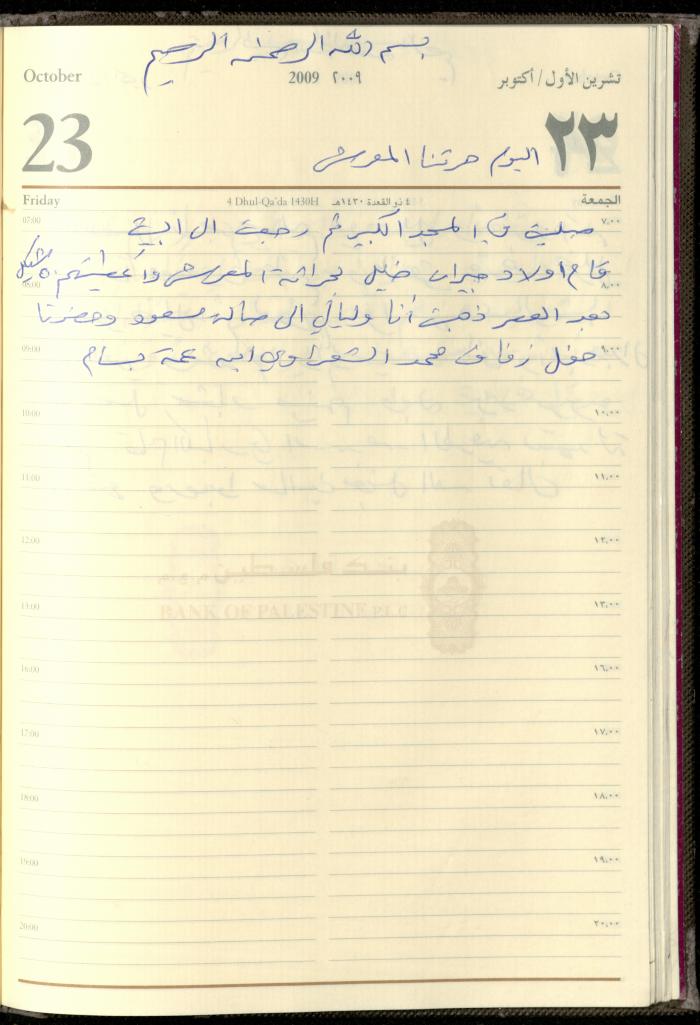 بسم الله الرحمن الرحيم
October
2009 ٢٠٠٩
تشرين الأول / أكتوبر
23
٢٣
اليوم حرثنا المعرش
Friday
4 Dhul-Qa'da 1430H ٤ ذو القعدة ١٤٣٠هـ
الجمعة
07:00 ٧,٠٠
صليت في المسجد الكبير ثم رجعت الى البيت
قام اولاد جيران خليل بحراثة المعرش وأعطيتهم ٥٠ شيكل
08:00 ٨,٠٠
بعد العصر ذهبت أنا وليالي الى صالة وحضرنا
09:00 ٩,٠٠
حفل زفاف محمد الشعراوي ابن عمة بسام
10:00 ١٠,٠٠
11:00 ١١,٠٠
12:00 ١٢,٠٠
BANK OF PALESTINE P.L.C
13:00 ١٣,٠٠
16:00 ١٦,٠٠
17:00 ١٧,٠٠
18:00 ١٨,٠٠
19:00 ١٩,٠٠
20:00 ٢٠,٠٠